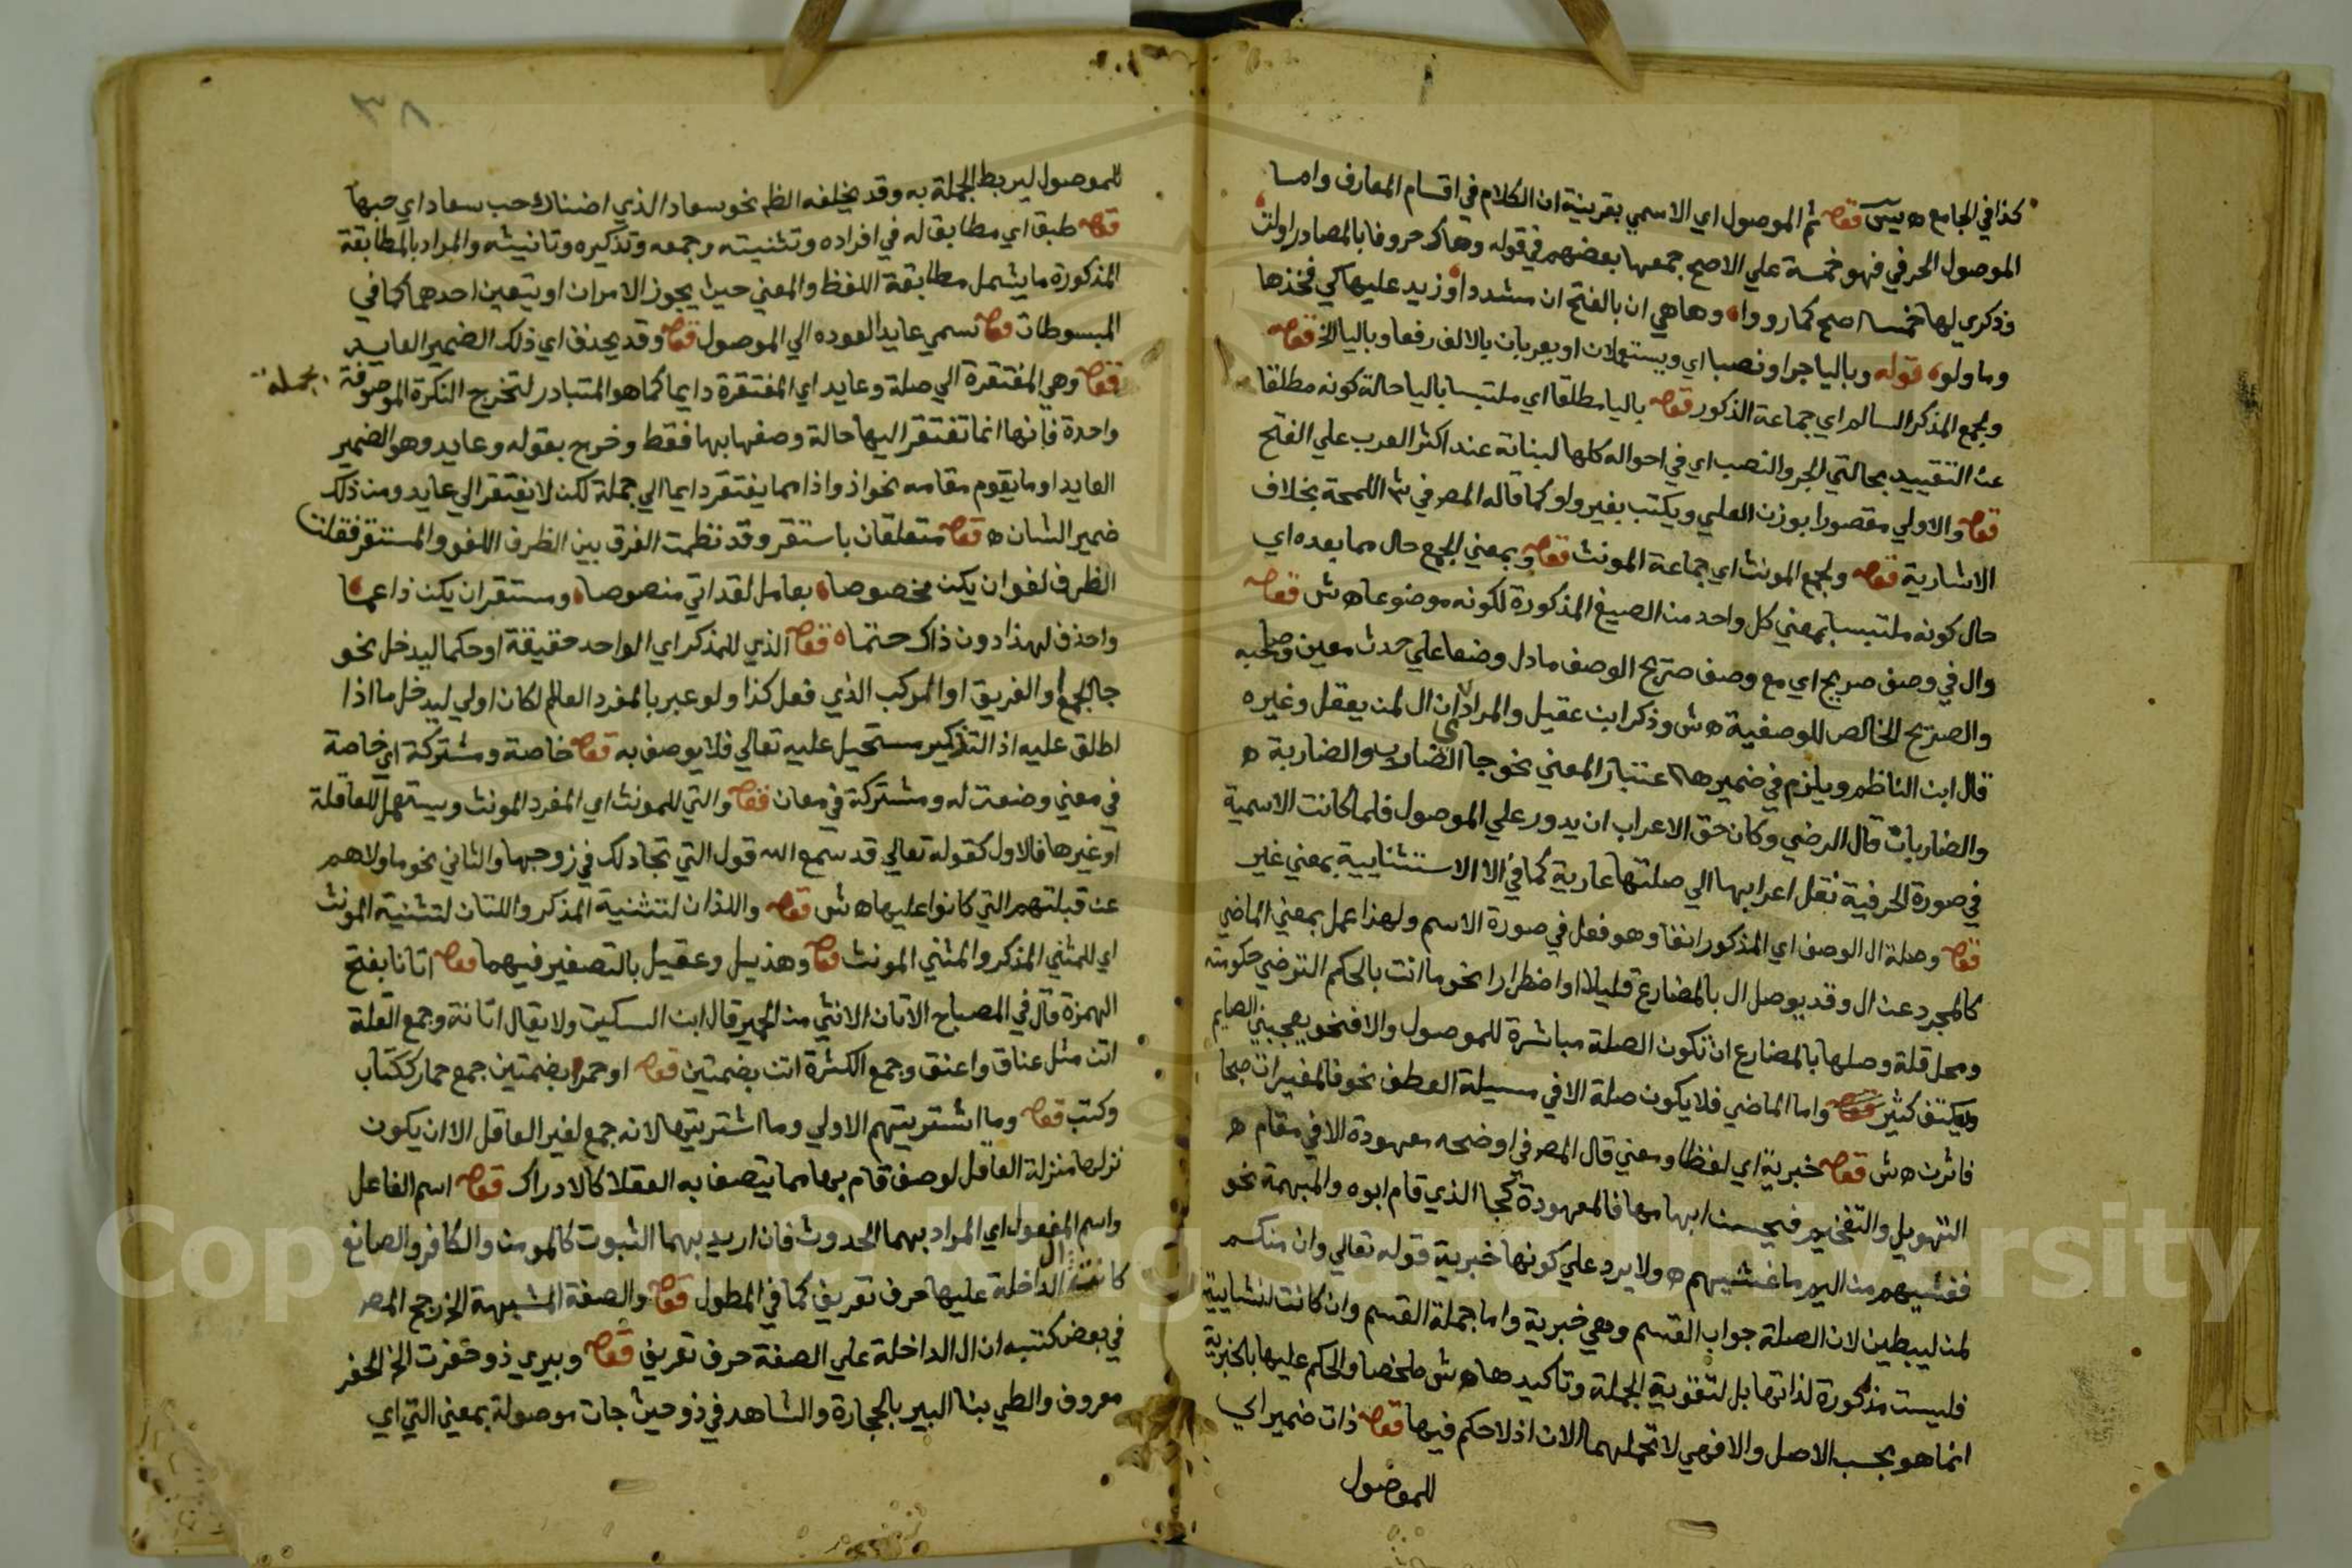 كذا في الجامع ه يس قوله ثم الموصول اي الاسمي بقرينة ان الكلام في اقسام المعارف واما
الموصول الحرفي فهو خمسة علي الاصح جمعها بعضهم في قوله وهاك حروفا بالمصادر اولت
وذكري لها خمسا اصح كما رووا وها هي ان بالفتح ان مشددا وزيد عليها كي فخذها
وما ولو قوله وباليا جرا ونصبا اي ويستعملان او يعربان بالالف رفعا وباليا الخ قوله
ولجمع المذكر السالم اي جماعة الذكور قوله باليا مطلقا اي ملتبسا باليا حالة كونه مطلقا
عن التقييد بحالتي الجر والنصب اي في احواله كلها لبنائه عند اكثر العرب علي الفتح
قوله والاولي مقصورا بوزن العلي ويكتب بغير واو كما قاله المص في ش اللمحة بخلاف
الاشارية قوله ولجمع المونث اي جماعة المونث قوله وبمعني الجمع حال مما بعده اي
حال كونه ملتبسا بمعني كل واحد من الصيغ المذكورة لكونه موضوعا ه ش قوله
وال في وصف صريح اي مع وصف صريح الوصف ما دل وضعا علي حدث معين وصاحبه
والصريح الخالص للوصفية ه ش وذكر ابن عقيل والمراد ان ال لمن يعقل وغيره
قال ابن الناظم ويلزم في ضميرها اعتبار المعني نحو جا الضارب والضاربة ه
والضاربات قال الرضي وكان حق الاعراب ان يدور علي الموصول فلما كانت الاسمية
في صورة الحرفية نقل اعرابها الي صلتها عارية كما في الا الاستثنايية بمعني غير
قوله وصلة ال الوصف اي المذكور انفا وهو فعل في صورة الاسم ولهذا عمل بمعني الماضي
كالمجرد عن ال وقد يوصل ال بالمضارع قليلا او اضطرارا نحو ما انت بالحكم الترضي حكومته
ومحل قلة وصلها بالمضارع ان تكون الصلة مباشرة للموصول والا فنحو يعجبني الصايم
ويعتكف كثير قوله واما الماضي فلا يكون صلة الا في مسيلة العطف نحو فالمغيرات صبحا
فاثرن ه ش قوله خبرية اي لفظا ومعني قال المص في اوضحه معهودة الا في مقام ه
التهويل والتفخيم فيحسن ابهامها فالمعهودة كجا الذي قام ابوه والمبهمة نحو
فغشيهم من اليم ما غشيهم ه ولا يرد علي كونها خبرية قوله تعالي وان منكم
لمن ليبطين لان الصلة جواب القسم وهي خبرية واما جملة القسم وان كانت انشايية
فليست مذكورة لذاتها بل لتقوية الجملة وتاكيدها ه ش ملخصا والحكم عليها بالخبرية
انما هو بحسب الاصل والا فهي لا تحملهما الان اذ لا حكم فيها قوله ذات ضمير اي
للموصول
٣٨
للموصول ليربط الجملة به وقد يخلفه الظم نحو سعاد الذي اضناك حب سعاد اي حبها
قوله طبق اي مطابق له في افراده وتثنيته وجمعه وتذكيره وتانيثه والمراد بالمطابقة
المذكورة ما يشمل مطابقة اللفظ والمعني حيث يجوز الامران او يتعين احدهما كما في
المبسوطات قوله تسمي عايد العوده الي الموصول قوله وقد يحذف اي ذلك الضمير العايد
قوله وهي المفتقرة الي صلة وعايد اي المفتقرة دايما كما هو المتبادر لتخرج النكرة الموصوفة
بجملة
واحدة فانها انما تفتقر اليها حالة وصفها بها فقط وخرج بقوله وعايد وهو الضمير
العايد او ما يقوم مقامه نحو اذ واذا مما يفتقر دايما الي جملة لكن لا يفتقر الي عايد ومن ذلك
ضمير الشان ه قوله متعلقان باستقر وقد نظمت الفرق بين الظرف اللغو والمستقر فقلت
الظرف لغو ان يكن مخصوصا بعامل لقد اتي منصوصا ومستقر ان يكن ذا عما
واحذف لهذا دون ذاك حتما ه قوله الذي للمذكر اي الواحد حقيقة او حكما ليدخل نحو
جا الجمع او الفريق او المركب الذي فعل كذا ولو عبر بالمفرد العالم لكان اولي ليدخل ما اذا
اطلق عليه اذ التذكير مستحيل عليه تعالي فلا يوصف به قوله خاصة ومشتركة اي خاصة
في معني وضعت له ومشتركة في معان قوله والتي للمونث اي المفرد المونث ويستعمل للعاقلة
او غيرها فالاول كقوله تعالي قد سمع الله قول التي تجادلك في زوجها والثاني نحو ما ولاهم
عن قبلتهم التي كانوا عليها ه ش قوله واللذان لتثنية المذكر واللتان لتثنية المونث
اي للمثني المذكر والمثني المونث قوله وهذيل وعقيل بالتصغير فيهما قوله اتانا بفتح
الهمزة قال في المصباح الاتان الانثي من الحمير قال ابن السكيت ولا يقال اتانة وجمع القلة
اتن مثل عناق واعنق وجمع الكثرة اتن بضمتين قوله او حمرا بضمتين جمع حمار ككتاب
وكتب قوله وما اشتريتهم الاولي وما اشتريتها لانه جمع لغير العاقل الا ان يكون
نزلها منزلة العاقل لوصف قام بها مما يتصف به العقلا كالادراك قوله اسم الفاعل
واسم المفعول اي المراد بهما الحدوث فان اريد بهما الثبوت كالمومن والكافر والصانع
كانت ال الداخلة عليها حرف تعريف كما في المطول قوله والصفة المشبهة الخ رجح المص
في بعض كتبه ان ال الداخلة علي الصفة حرف تعريف قوله وبيري ذو حفرت الخ الحفر
معروف والطي بنا البير بالحجارة والشاهد في ذو حيث جات موصولة بمعني التي اي
Copyright © King Saud University